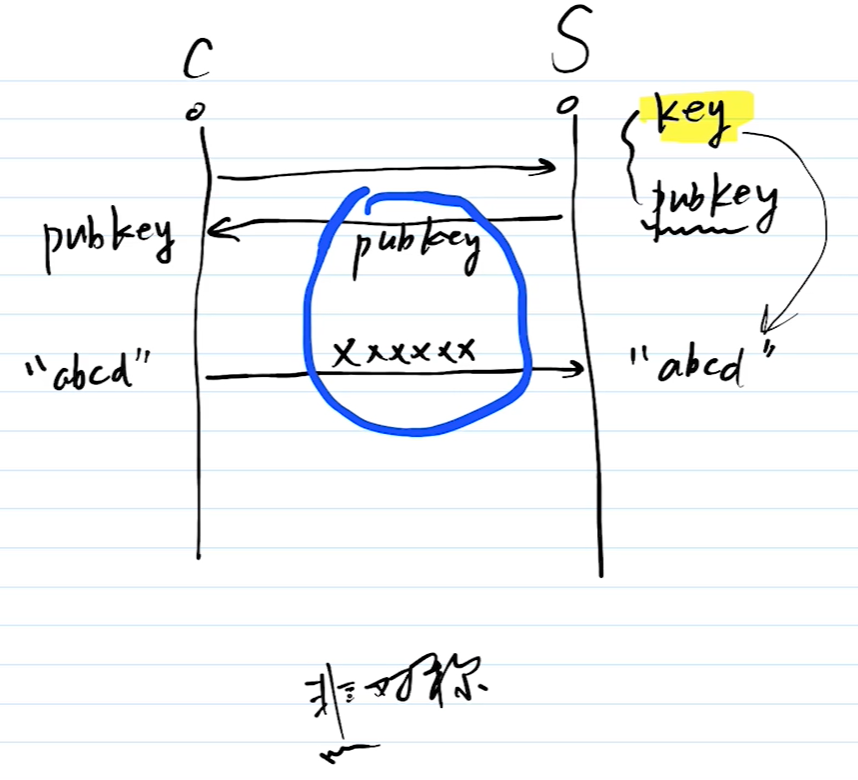 C S
key
pubkey
pubkey pubkey
xxxxxx
"abcd" "abcd"
非对称